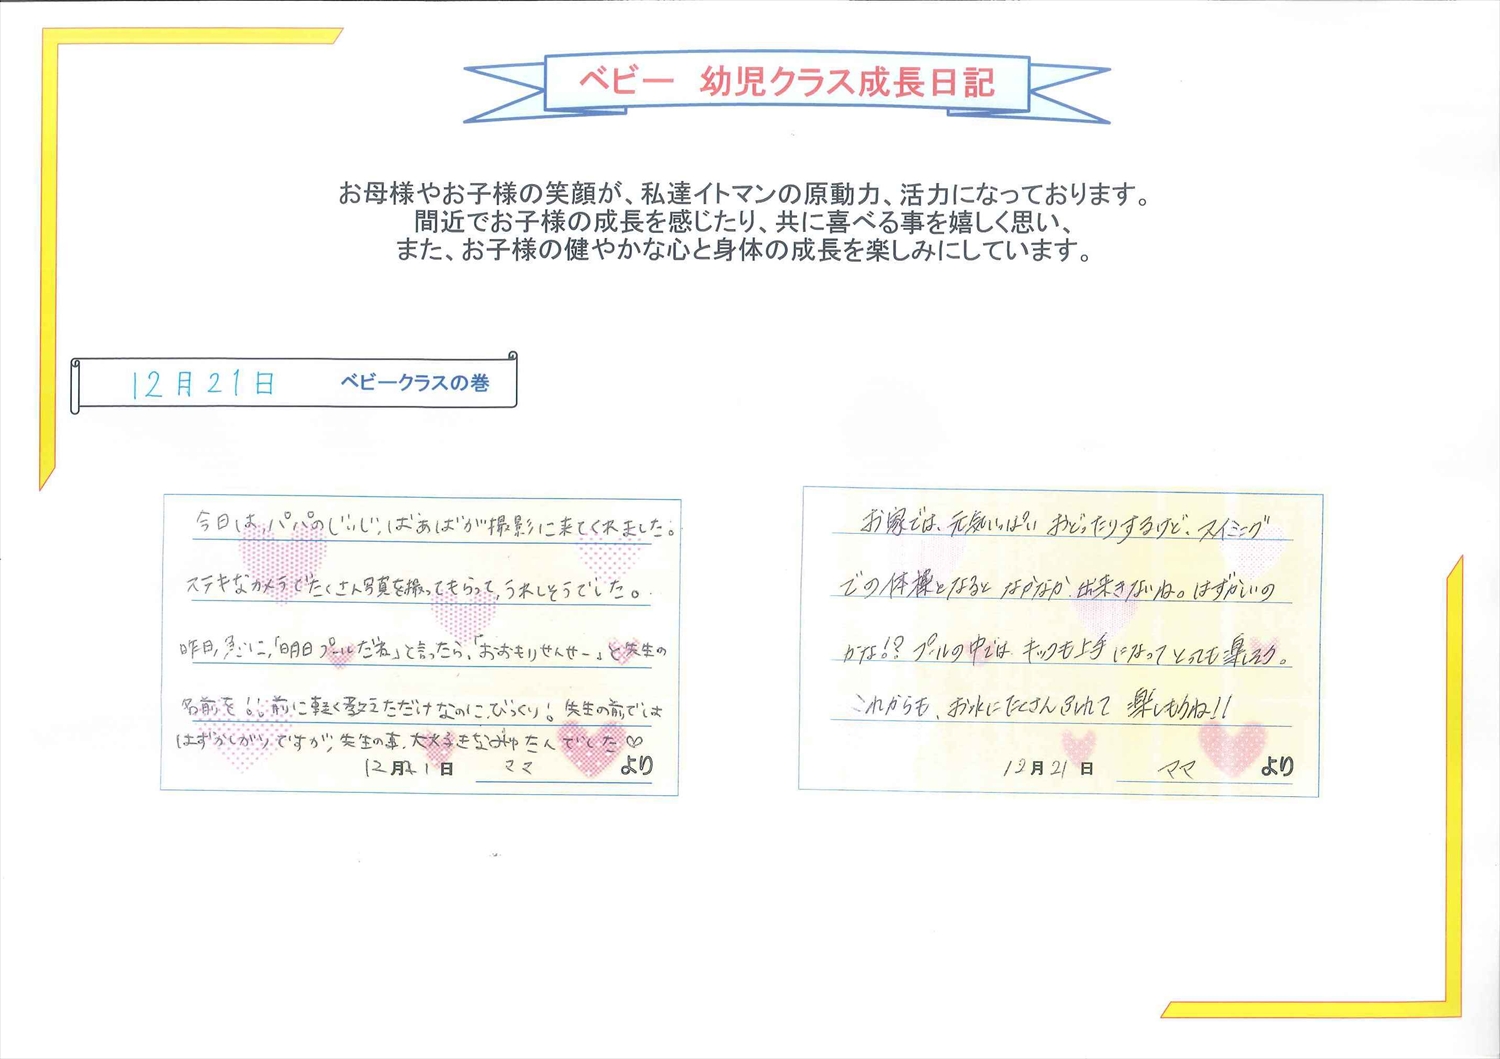 ベビー 幼児クラス成長日記
お母様やお子様の笑顔が、私達イトマンの原動力、活力になっております。
間近でお子様の成長を感じたり、共に喜べる事を嬉しく思い、
また、お子様の健やかな心と身体の成長を楽しみにしています。
12月21日 ベビークラスの巻
今日は、パパのじぃじ、ばあばが撮影に来てくれました。
ステキなカメラでたくさん写真を撮ってもらって、うれしそうでした。
昨日、急に、「明日プールだね」と言ったら、「おおもりせんせー」と先生の
名前を!!前に軽く教えただけなのに、びっくり! 先生の前では
はずかしがりですが、先生の事、大好きなみたんでした♡
12月21日 ママ より
お家では、元気いっぱい おどったりするけど、スイミング
での体操となると なかなか 出来きないね。はずかしいの
かな!? プールの中では キックも上手になって とっても楽しそう。
これからも、お水にたくさんふれて 楽しもうね!!
12月21日 ママ より